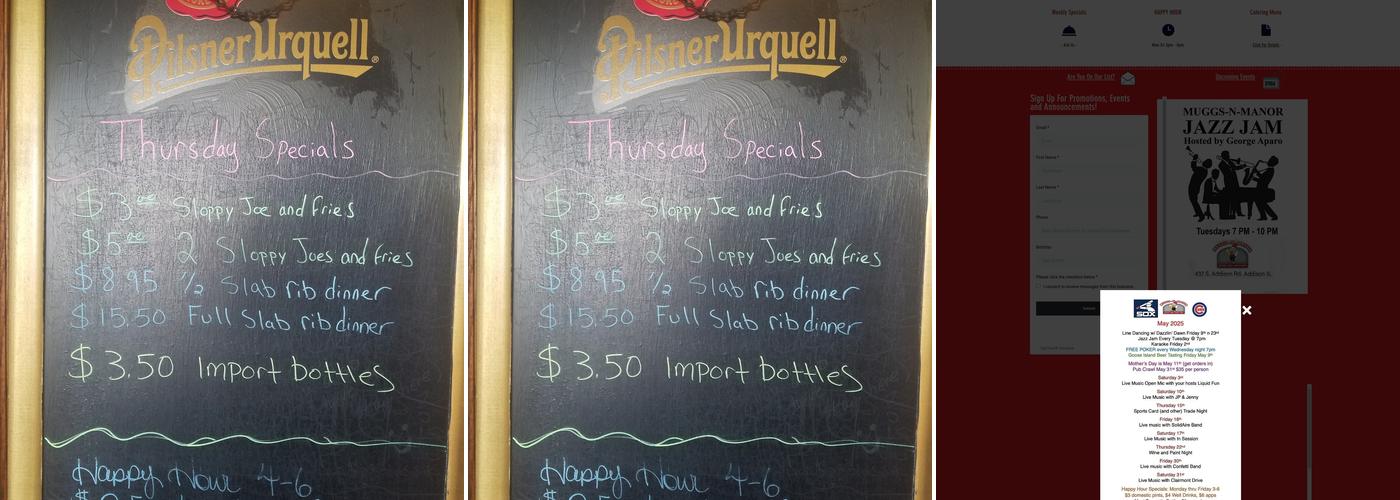 Pilsner Urquell®
Thursday Specials
$3.00 Sloppy Joe and fries
$5.00 2 Sloppy Joes and fries
$8.95 1/2 Slab rib dinner
$15.50 Full Slab rib dinner
$3.50 Import bottles
Happy Hour 4-6
Pilsner Urquell®
Thursday Specials
$3.00 Sloppy Joe and fries
$5.00 2 Sloppy Joes and fries
$8.95 1/2 Slab rib dinner
$15.50 Full Slab rib dinner
$3.50 Import bottles
Happy Hour 4-6
Weekly Specials
HAPPY HOUR
Catering Menu
Are You On Our List?
Upcoming Events
Sign Up For Promotions, Events
and Announcements!
Email *
First Name *
Last Name *
Phone
Birthday
MUGGS-N-MANOR
JAZZ JAM
Hosted by George Aparo
Tuesdays 7 PM - 10 PM
437 S. Addison Rd. Addison IL
SOX
May 2025
Line Dancing w/ Dazzlin' Dawn Friday 9th n 23rd
Jazz Jam Every Tuesday @ 7pm
Karaoke Friday 2nd
FREE POKER every Wednesday night 7pm
Goose Island Beer Tasting Friday May 9th
Mother's Day is May 11th (get orders in)
Pub Crawl May 31st $35 per person
Saturday 3rd
Live Music Open Mic with your hosts Liquid Fun
Saturday 10th
Live Music with JP & Jenny
Thursday 15th
Sports Card (and other) Trade Night
Friday 16th
Live music with SolidAire Band
Saturday 17th
Live Music with In Session
Thursday 22nd
Wine and Paint Night
Friday 30th
Live music with Confetti Band
Saturday 31st
Live Music with Clairmont Drive
Happy Hour Specials: Monday thru Friday 3-6
$3 domestic pints, $4 Well Drinks, $6 apps